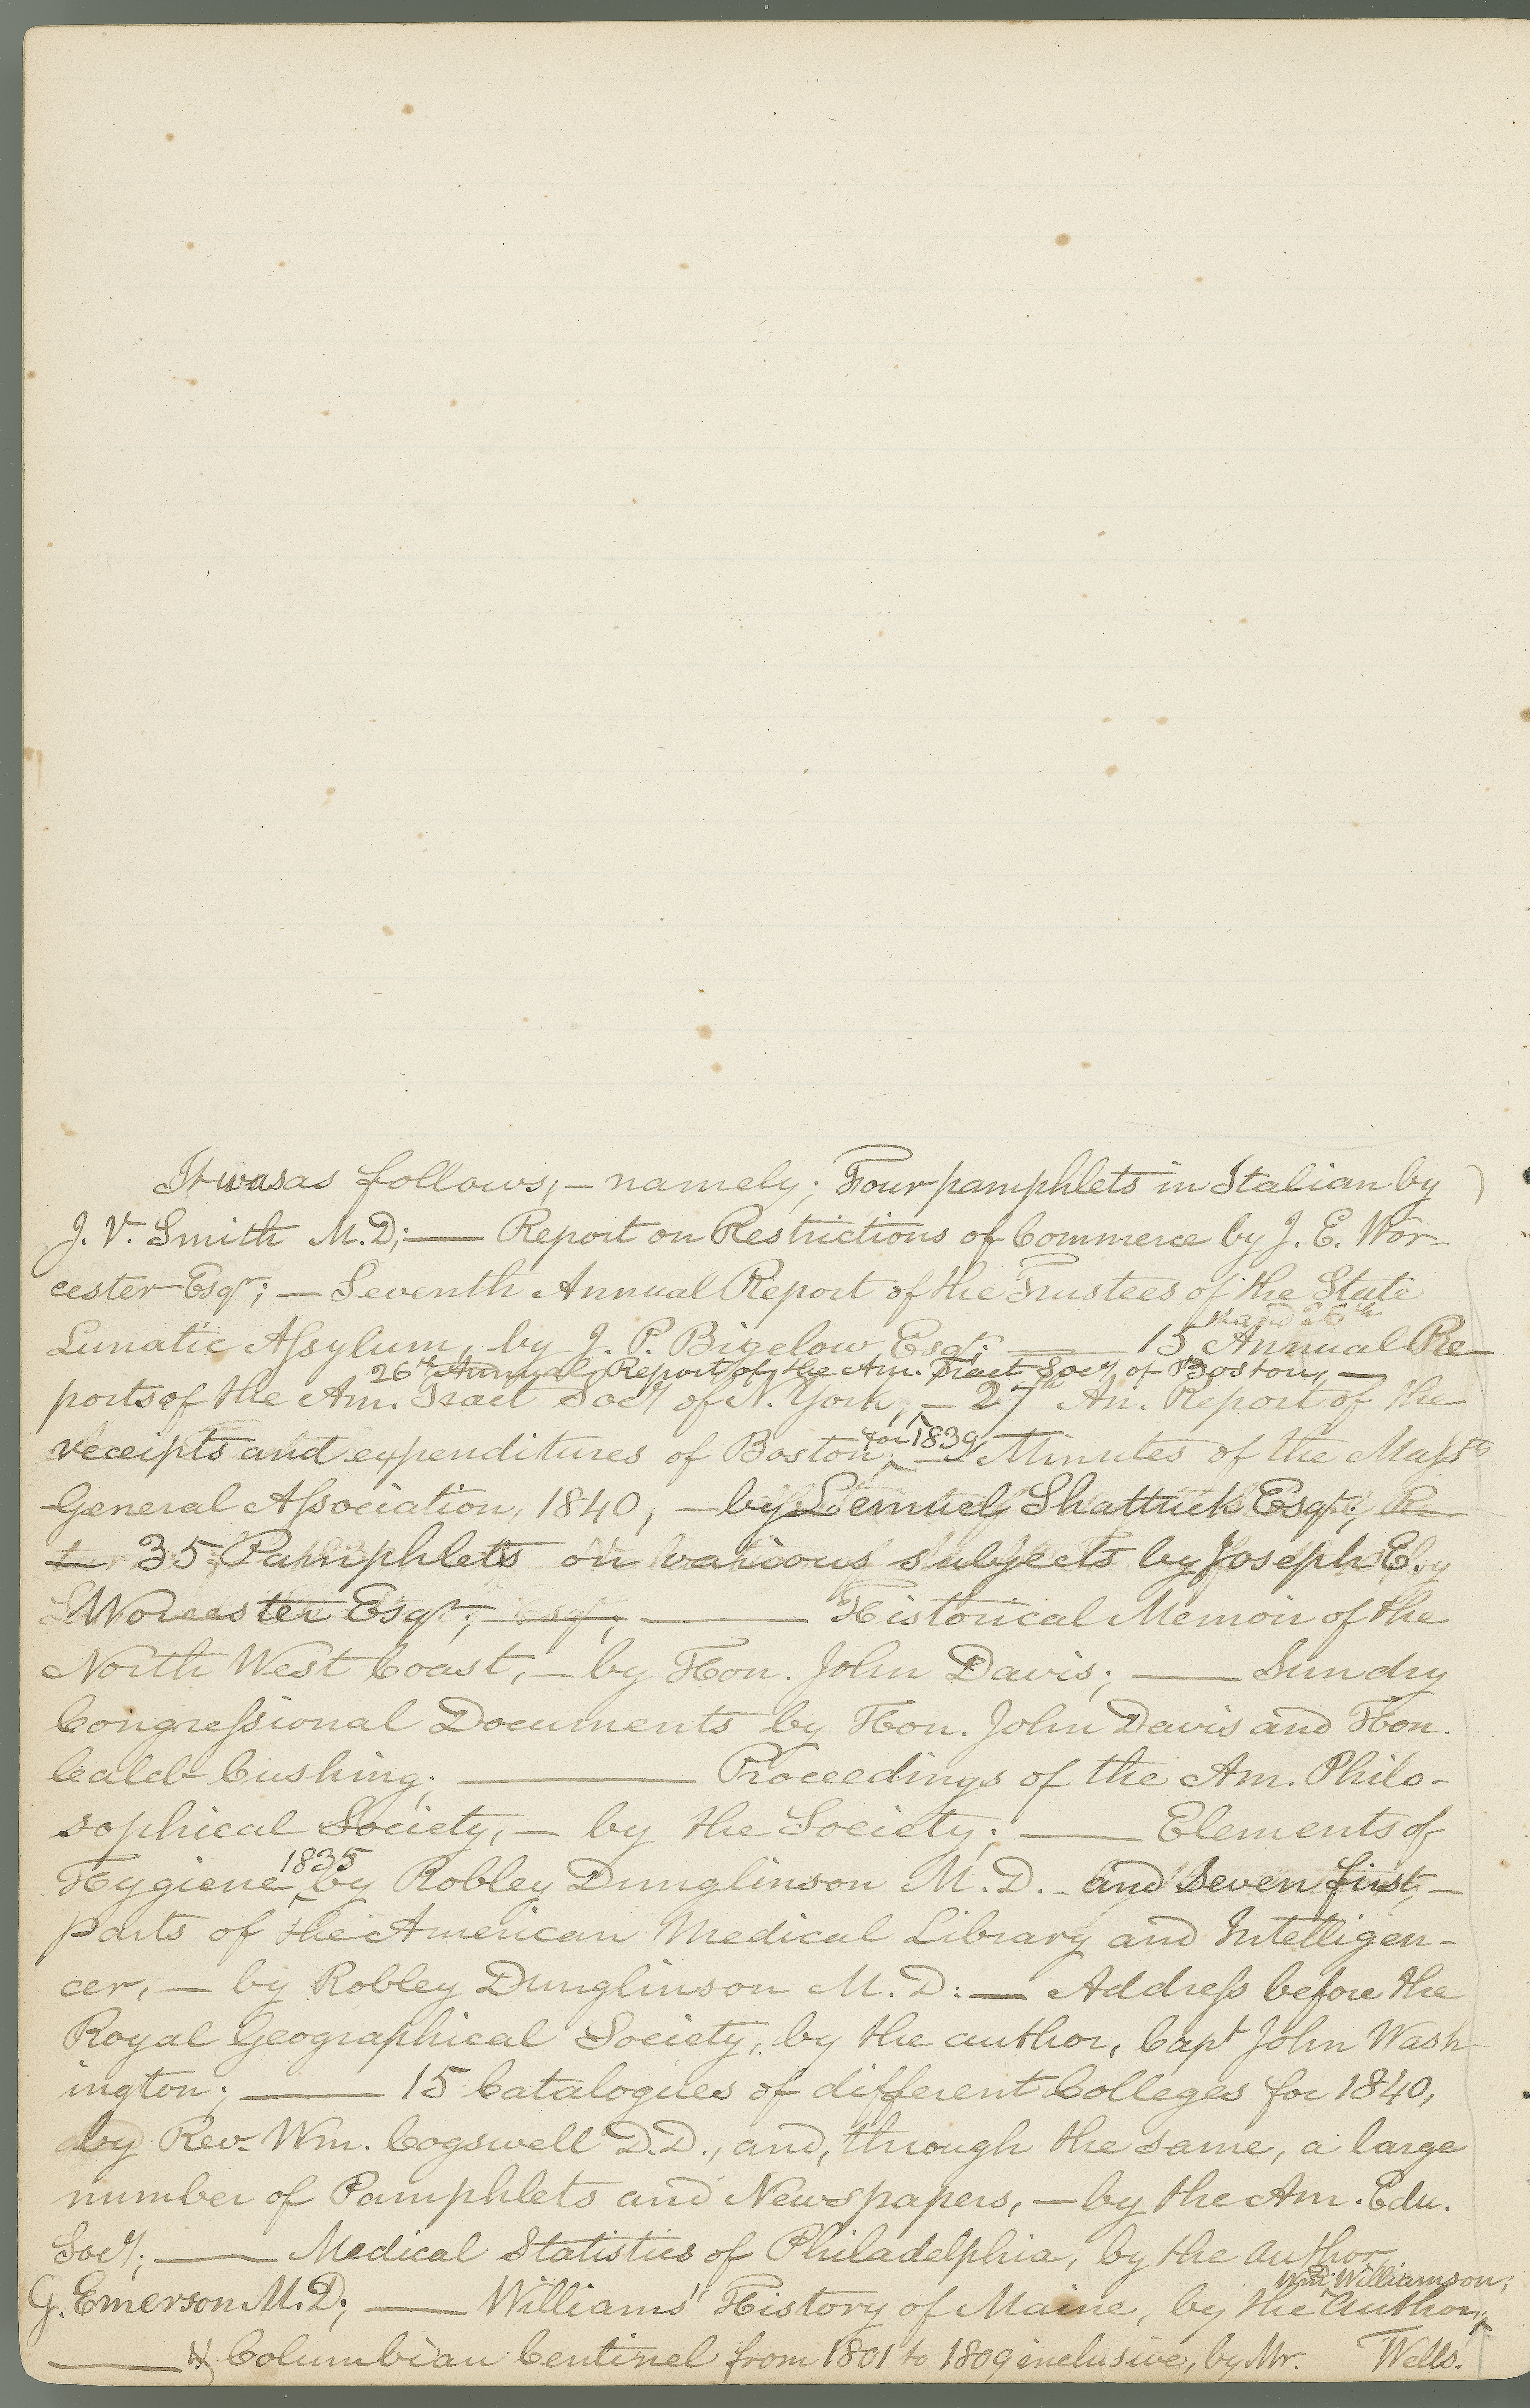 It was as follows, — namely; Four pamphlets in Italian by
J. V. Smith M.D; — Report on Restrictions of Commerce by J. E. Wor-
cester Esqr; — Seventh Annual Report of the Trustees of the State
Lunatic Assylum, by J. P. Bigelow Esqr; — 15 Annual Re-
26th Annual Report of the Am. Tract Socy of Boston, —
ports of the Am. Tract Socy of N. York, — 27th An. Report of the
for 1839
receipts and expenditures of Boston, — Minutes of the Massts
General Association, 1840, — by Lemuel Shattuck Esqr,
35 Pamphlets on various subjects by Joseph E.
Worcester Esqr; — Historical Memoir of the
North West Coast, — by Hon. John Davis; — Sundry
Congressional Documents by Hon. John Davis and Hon.
Caleb Cushing; — Proceedings of the Am. Philo-
sophical Society, — by the Society; — Elements of
1835
Hygiene, by Robley Dunglinson M.D. — and Seven first —
parts of the American Medical Library and Intelligen-
cer, — by Robley Dunglinson M.D: — Address before the
Royal Geographical Society, by the author, Capt John Wash-
ington; — 15 Catalogues of different Colleges for 1840,
by Rev. Wm. Cogswell D.D., and, through the same, a large
number of Pamphlets and Newspapers, — by the Am. Edu.
Socy; — Medical Statistics of Philadelphia, by the author,
Wm Williamson;
G. Emerson M.D; — Williams' History of Maine, by the Author,
— Columbian Centinel from 1801 to 1809 inclusive, by Mr. Wells.